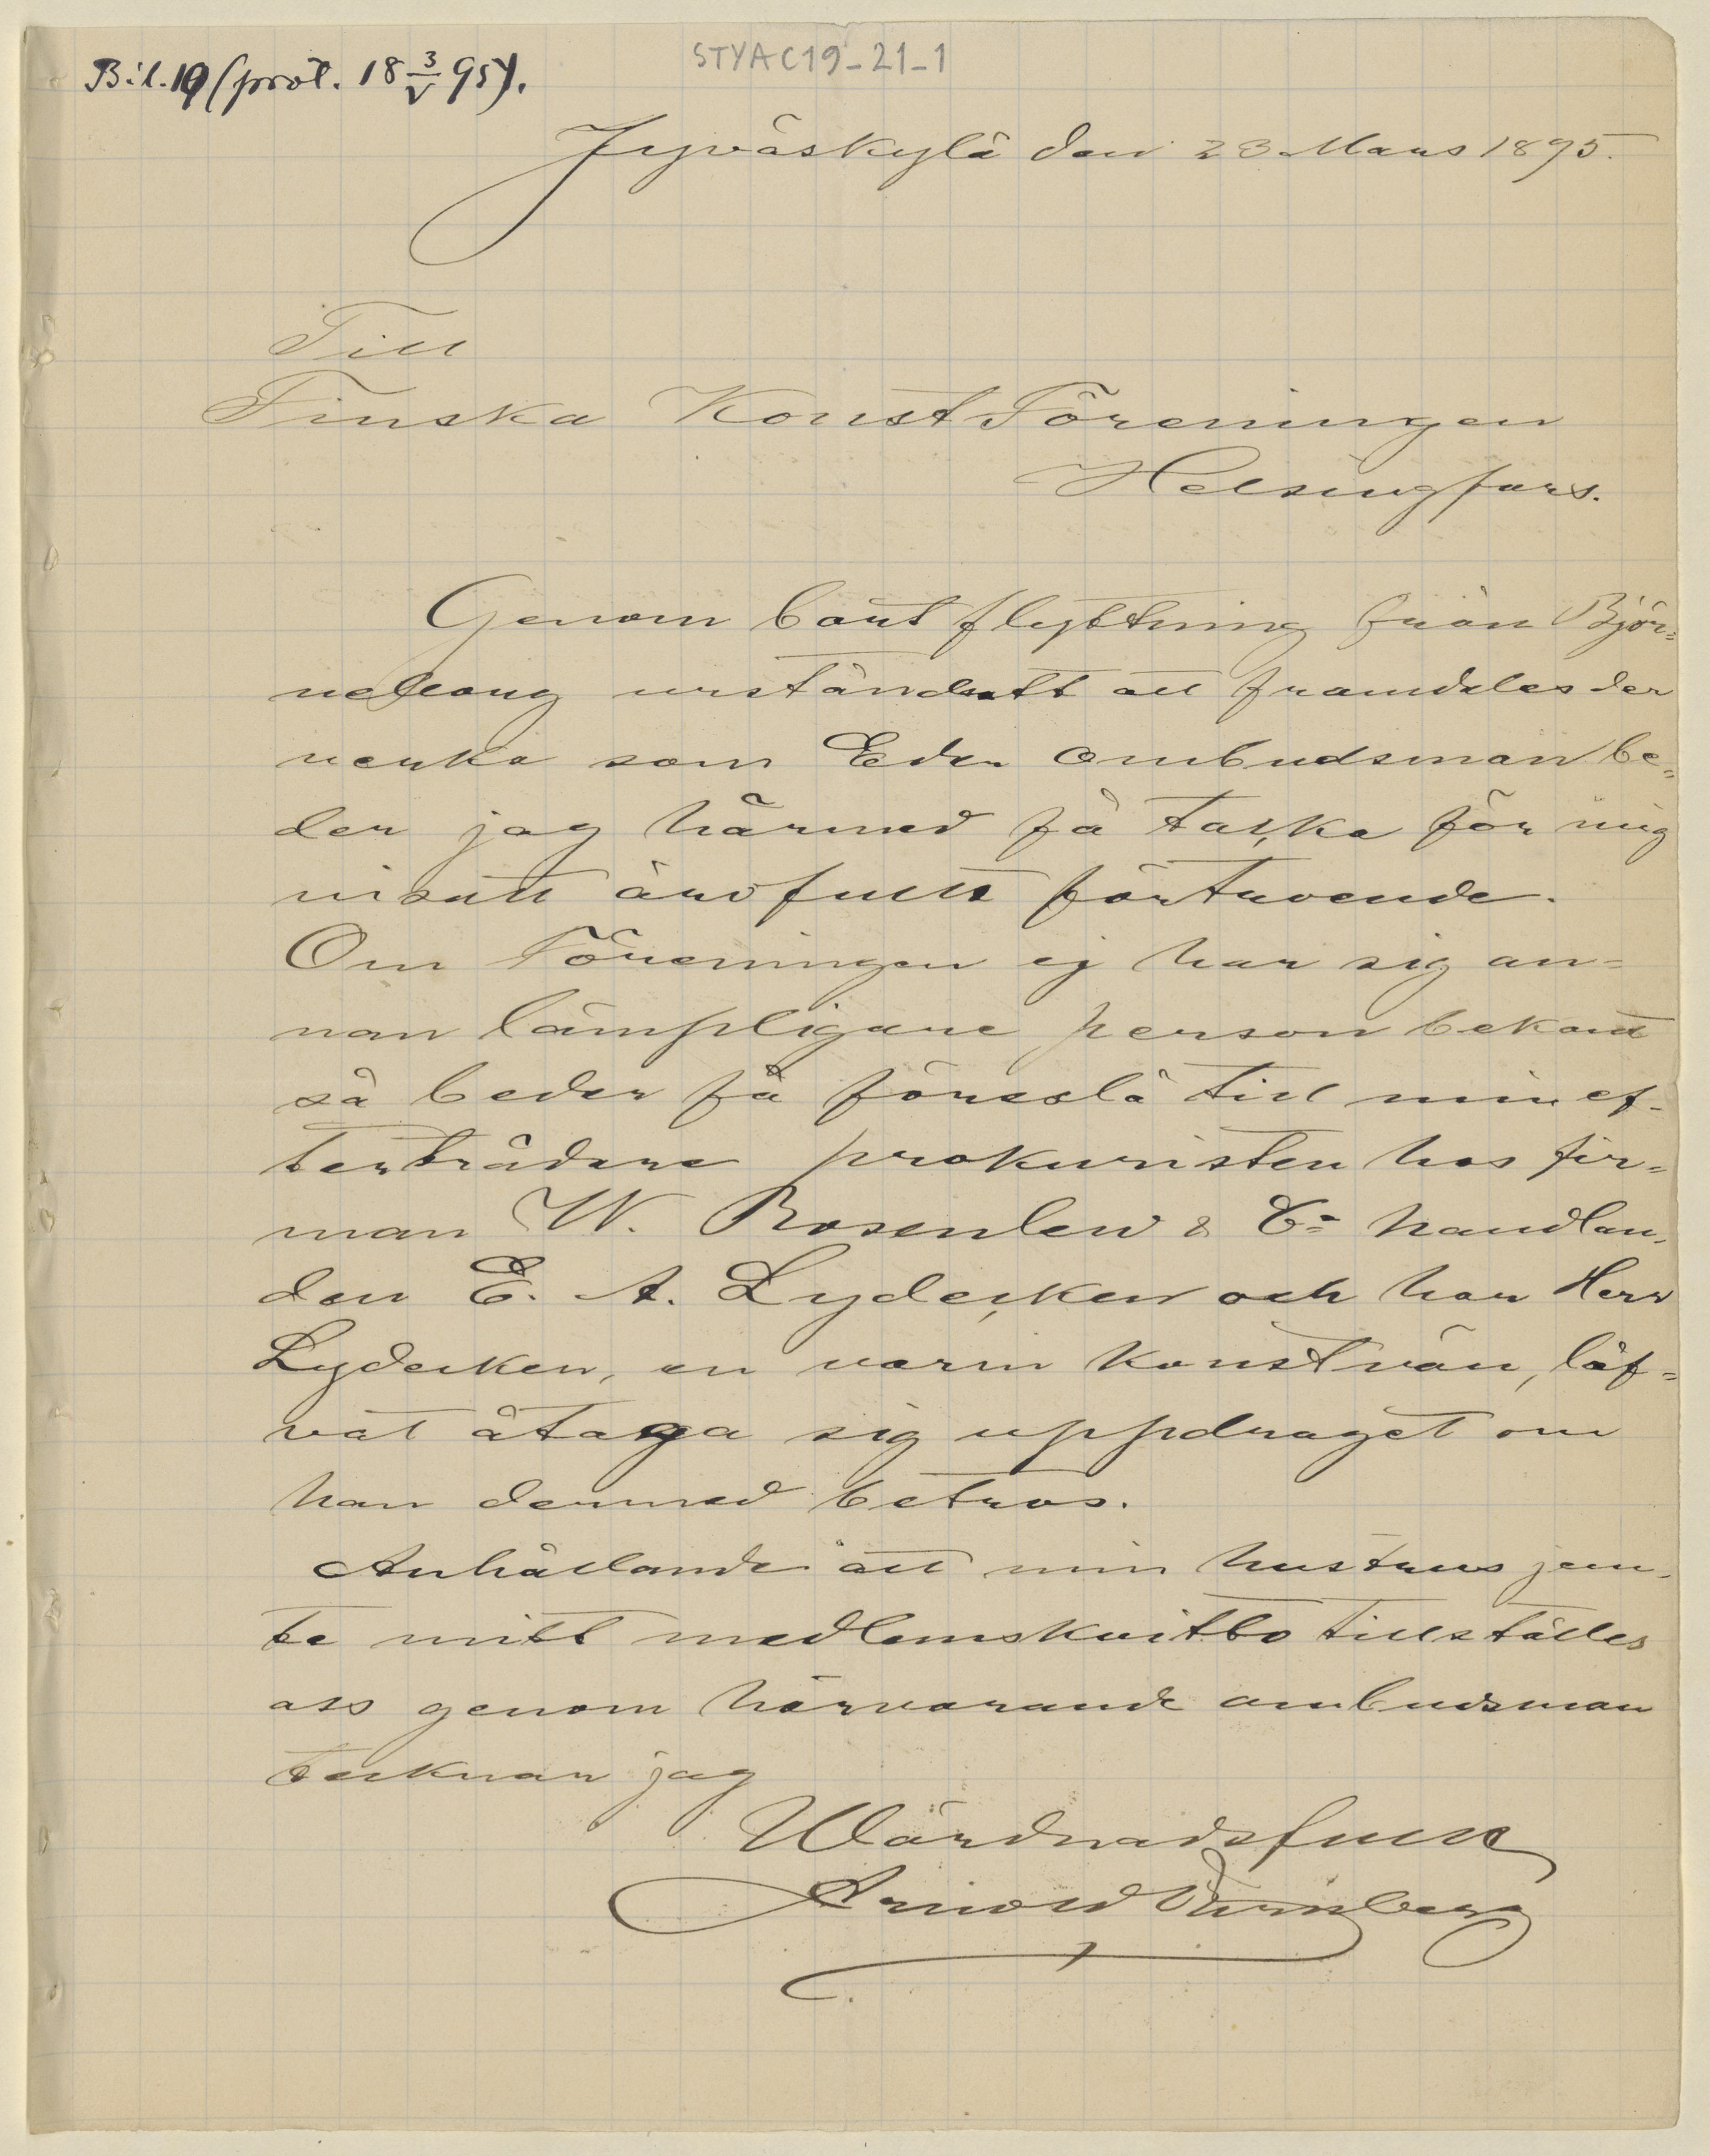 Bil. 19 (prot. 18 3/V 95).
STYAC19_21_1
Jyväskylä den 23 Mars 1895.
Till
Finska Konst Föreningen
Helsingfors.
Genom bort flyttning från Björ=
neborg urståndsatt att framdeles der
verka som Eder ombudsman be=
der jag härmed få tacka för mig
visatt ärofullt förtroende.
Om Föreningen ej har sig an=
nan lämpligare person bekant
så beder få föreslå till min ef-
terträdare prokuristen hos fir=
man W. Rosenlew & Co handlan-
den E. A. Lydecken och har Herr
Lydecken, en varm konstvän, låf=
vat åtaga sig uppdraget om
han dermed betros.
Anhållande att min hustrus jem-
te mitt medlemskvitto tillställes
oss genom härvarande ombudsman
tecknar jag
Wördnadsfullt
Arnold